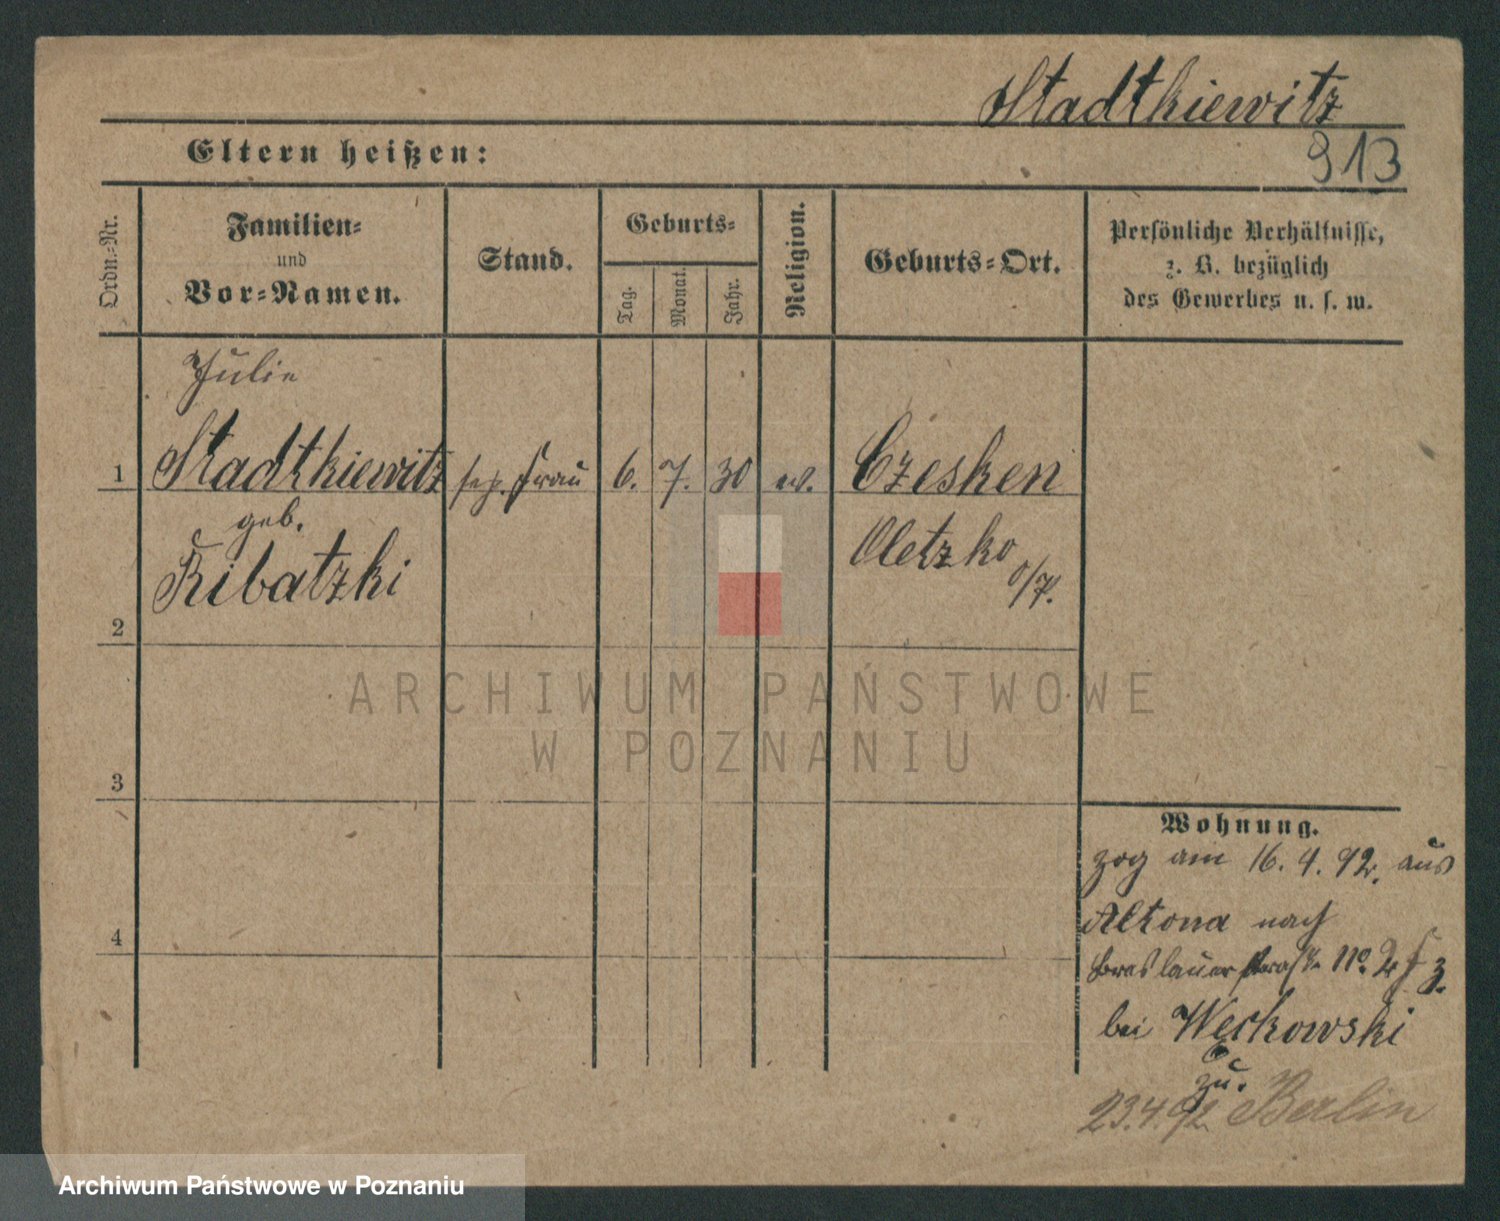 Stadtkiewitz
Eltern heißen:
913
Ordn.-Nr.
Familien-
und
Vor-Namen.
Stand.
Geburts-
Tag.
Monat.
Jahr.
Religion.
Geburts-Ort.
Persönliche Verhältnisse,
z. B. bezüglich
des Gewerbes u. s. w.
Julie
1 Stadtkiewitz sep. Frau 6. 7. 30 ev. Czesken
geb.
Oletzko
Ribatzki
o/P.
2
ARCHIWUM PAŃSTWOWE
W POZNANIU
3
Wohnung.
zog am 16. 4. 92. aus
Altona nach
4
Breslauerstraße No. 2
bei Weckowski
zu.
23.4.92 Berlin
Archiwum Państwowe w Poznaniu